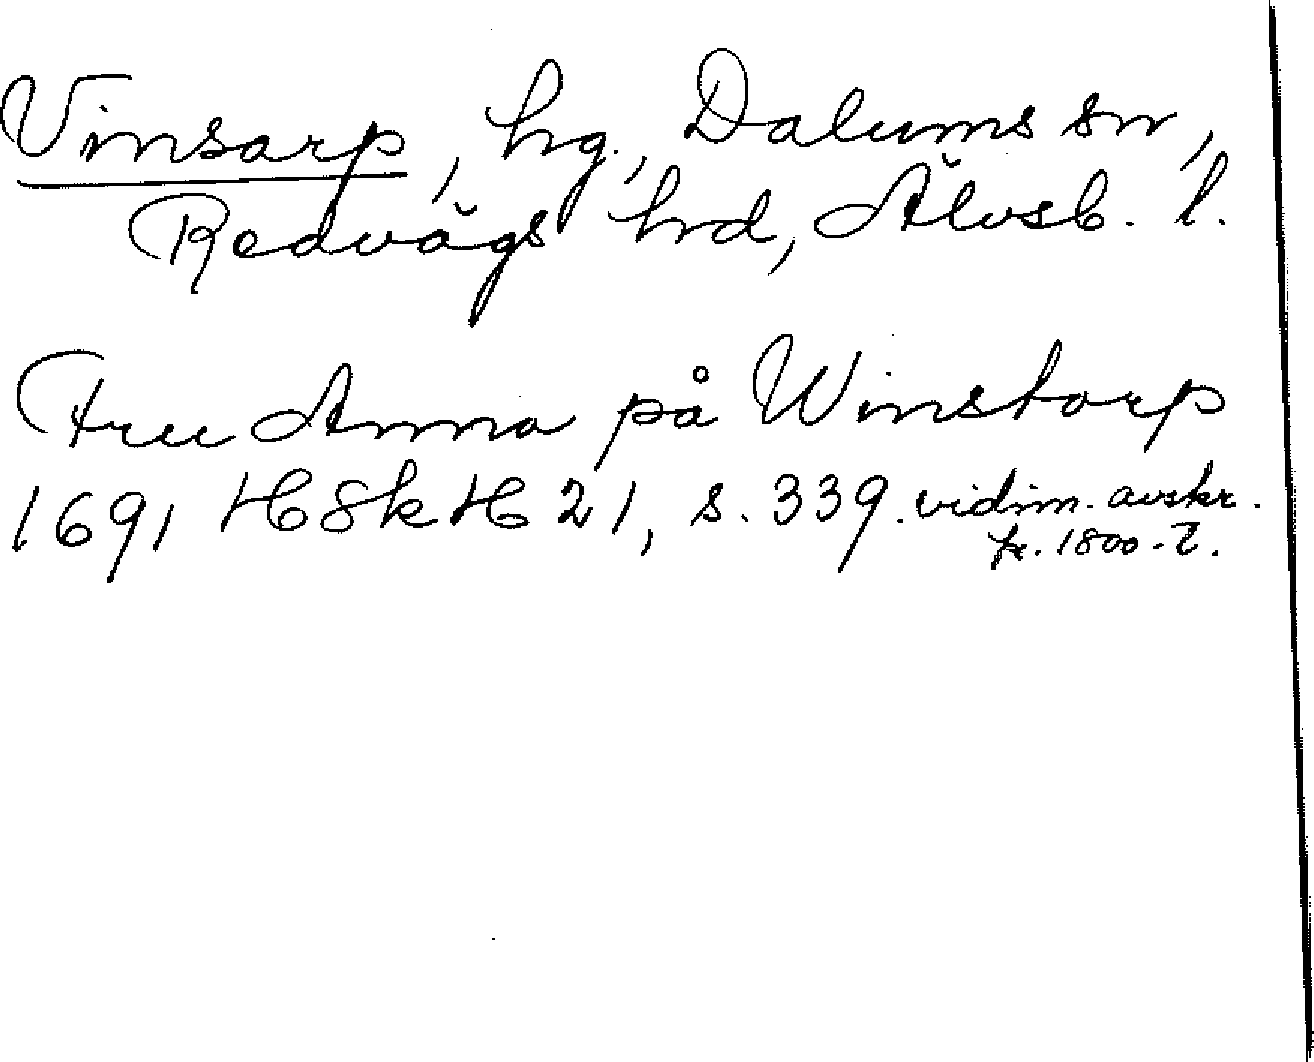 Vinsarp, hg., Dalums sn,
Redvägs hrd, Älvsb. l.
Fru Anna på Winstorp
1691 HSkH 21, s. 339. vidim. avskr.
fr. 1800-t.